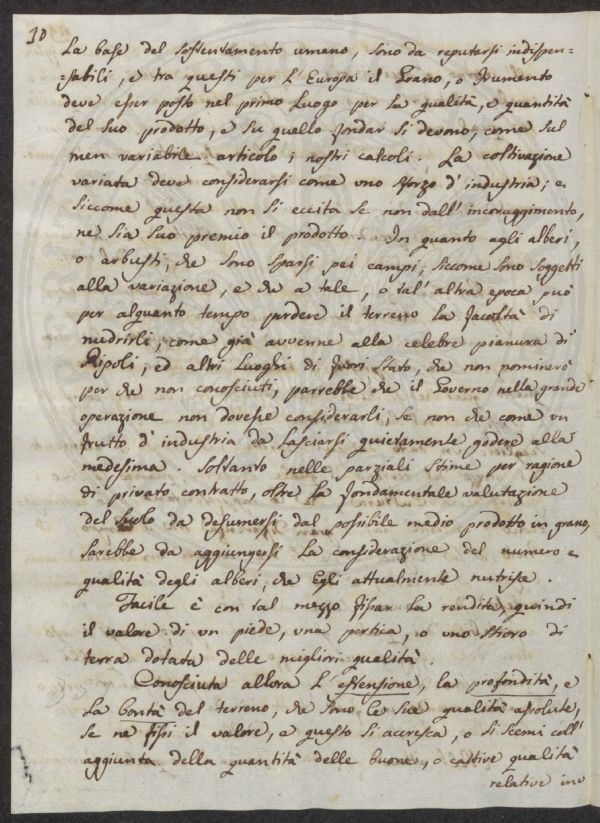 10
La base del sostentamento umano, sono da reputarsi indispen=
=sabili, e tra questi per l'Europa il Grano, o Frumento
deve esser posto nel primo luogo per la qualità, e quantità
del suo prodotto, e su quello fondar si devono, come sul
men variabile articolo i nostri calcoli. La coltivazione
variata deve considerarsi come uno sforzo d'industria; e
siccome questa non si eccita se non dall'incoraggimento,
ne sia suo premio il prodotto. In quanto agli alberi,
o arbusti, che sono sparsi pei campi, siccome sono soggetti
alla variazione, e che a tale, o tal'altra epoca può
per alquanto tempo perdere il terreno la facoltà di
nudrirli, come già avvenne alla celebre pianura di
Ripoli, ed altri Luoghi di fuori Stato, che non nominerò
per che non conosciuti, parrebbe che il Governo nella grande
operazione non dovesse considerarli, se non che come un
frutto d'industria da lasciarsi quietamente godere alla
medesima. Soltanto nelle parziali stime per ragione
di privato contratto, oltre la fondamentale valutazione
del suolo da desumersi dal possibile medio prodotto in grano,
sarebbe da aggiungersi la considerazione del numero e
qualità degli alberi, che Egli attualmente nutrisse.
Facile è con tal mezzo fissar la rendita, quindi
il valore di un piede, una pertica, o uno stioro di
terra dotata delle migliori qualità.
Conosciuta allora l'estensione, la profondità, e
la bontà del terreno, che sono le sue qualità assolute,
se ne fissi il valore, e questo si accresca, o si scemi coll'
aggiunta della quantità delle buone, o cattive qualità
relative inv